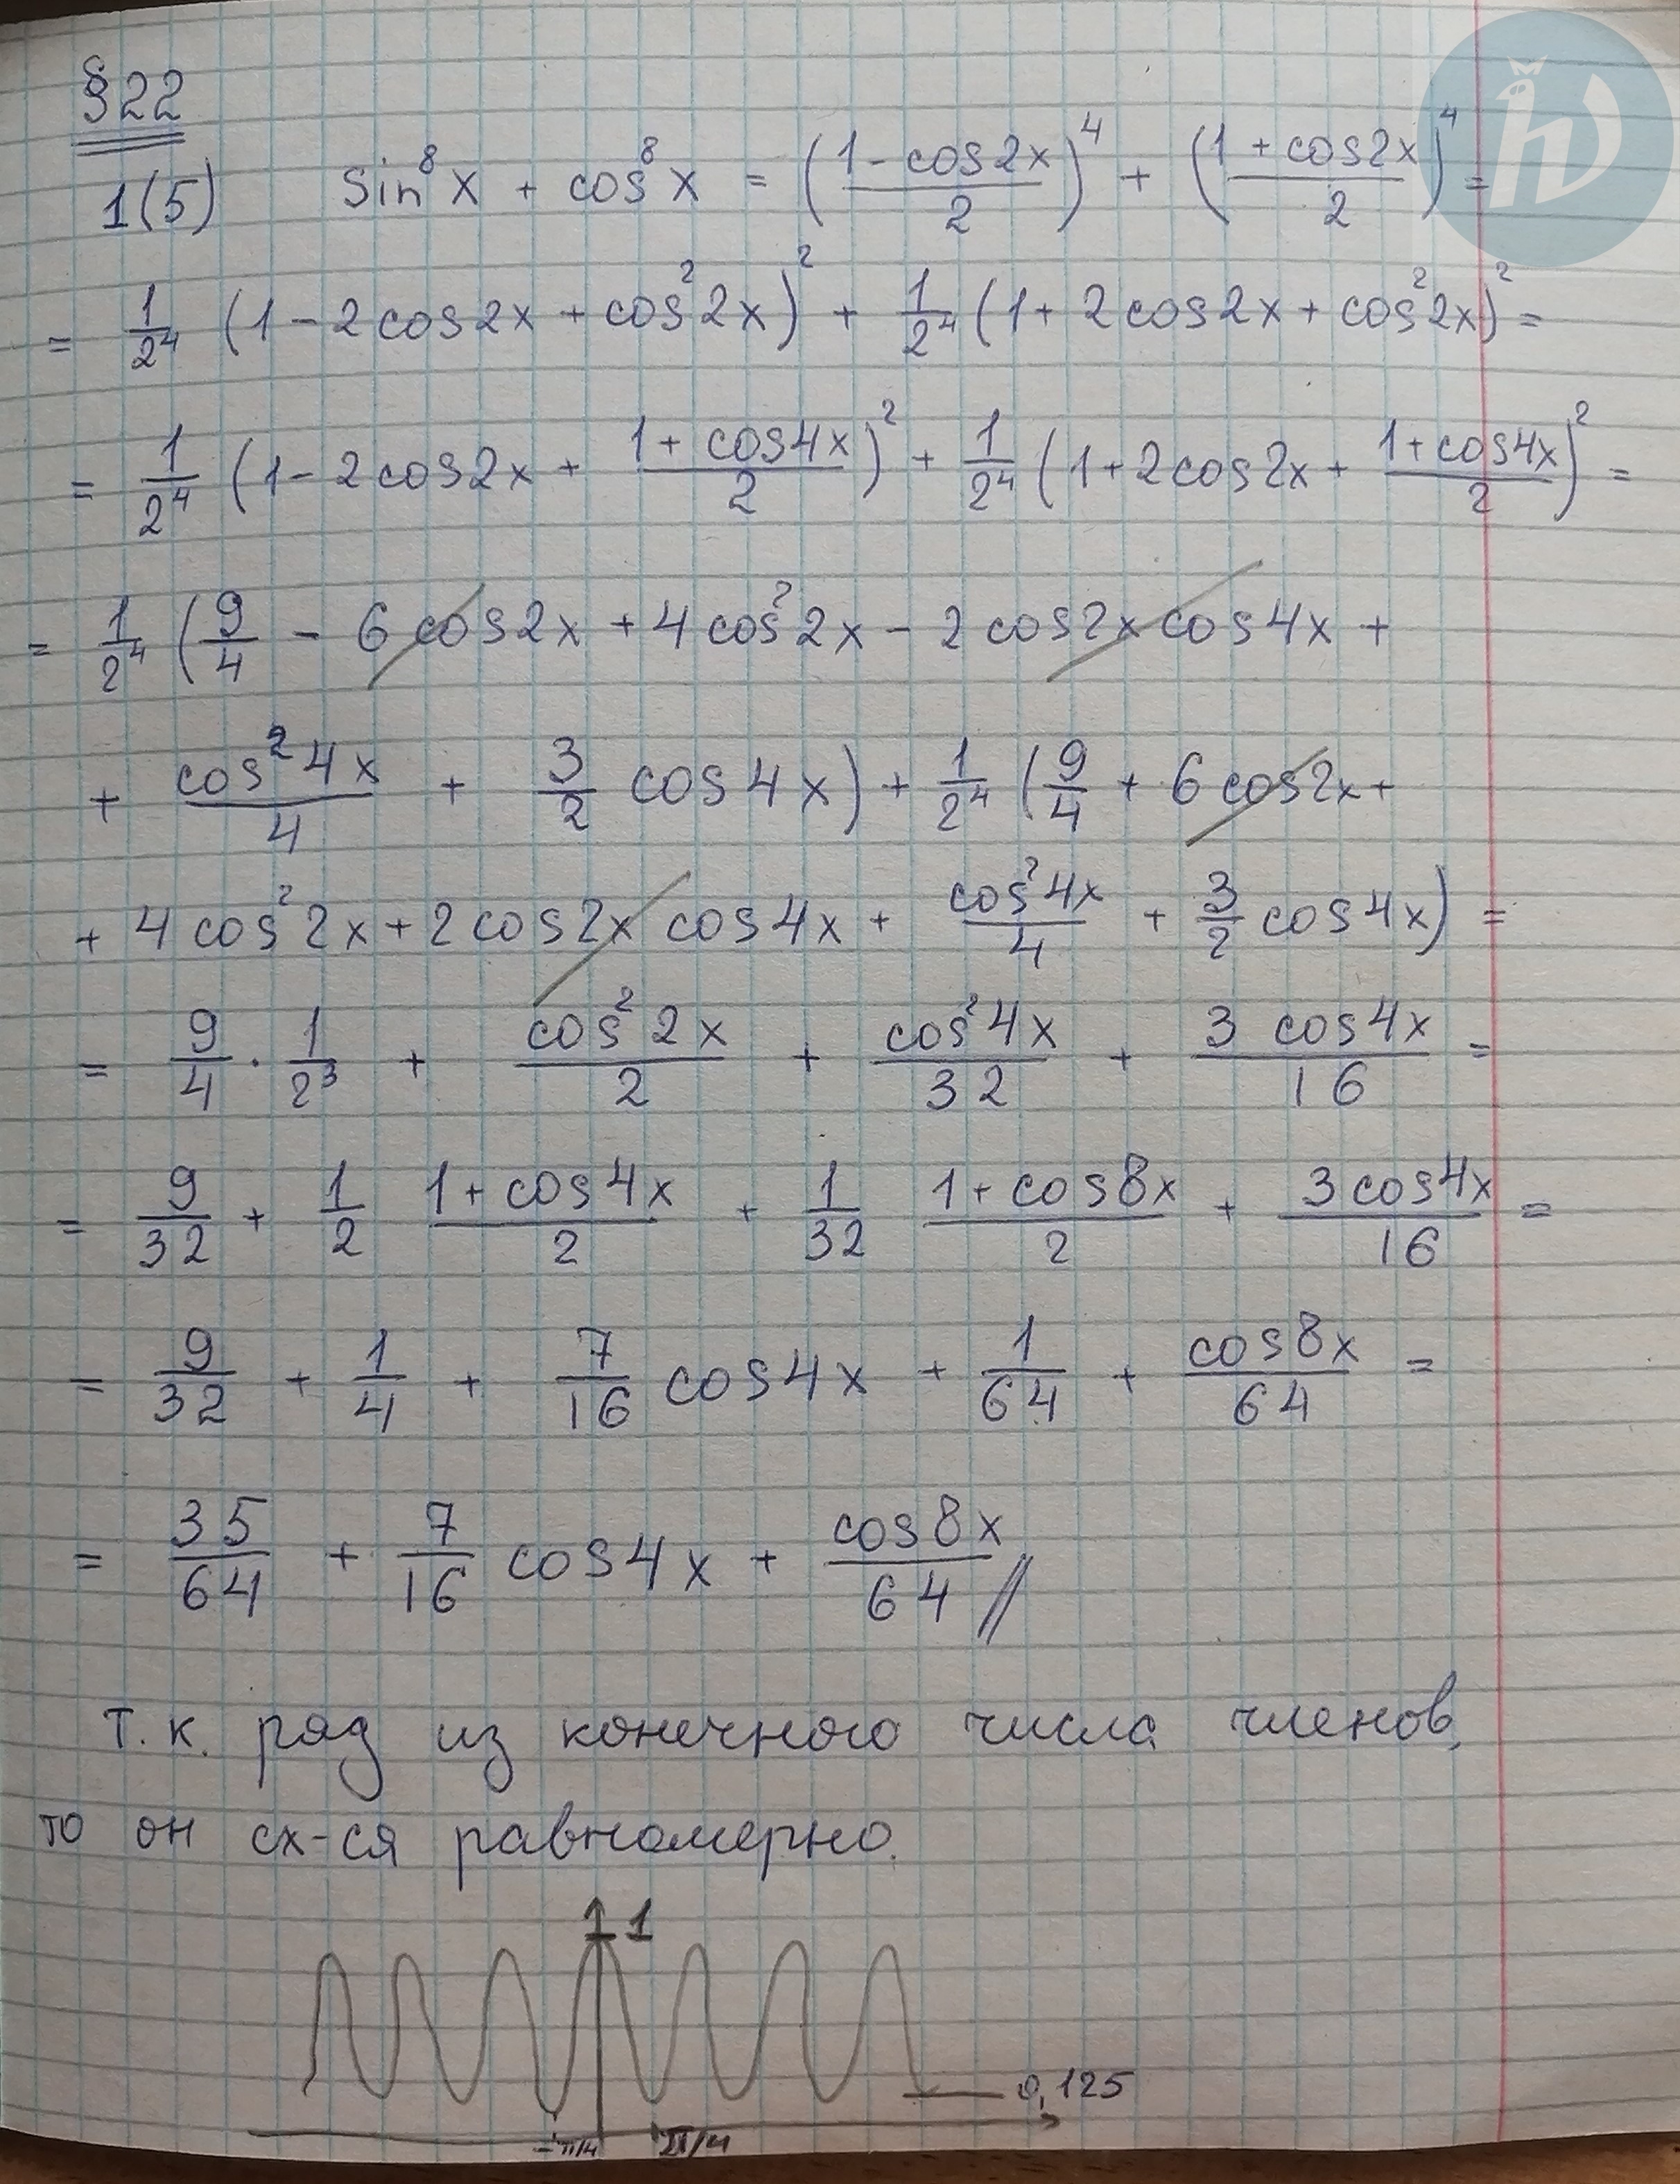 §22
1(5) sin⁸x + cos⁸x = ((1 - cos2x)/2)⁴ + ((1 + cos2x)/2)⁴ =
= 1/2⁴ (1 - 2cos2x + cos²2x)² + 1/2⁴ (1 + 2cos2x + cos²2x)² =
= 1/2⁴ (1 - 2cos2x + (1 + cos4x)/2)² + 1/2⁴ (1 + 2cos2x + (1 + cos4x)/2)² =
= 1/2⁴ (9/4 - 6cos2x + 4cos²2x - 2cos2x cos4x +
+ cos²4x/4 + 3/2 cos4x) + 1/2⁴ (9/4 + 6cos2x +
+ 4cos²2x + 2cos2x cos4x + cos²4x/4 + 3/2 cos4x) =
= 9/4 · 1/2³ + cos²2x/2 + cos²4x/32 + 3cos4x/16 =
= 9/32 + 1/2 (1 + cos4x)/2 + 1/32 (1 + cos8x)/2 + 3cos4x/16 =
= 9/32 + 1/4 + 7/16 cos4x + 1/64 + cos8x/64 =
= 35/64 + 7/16 cos4x + cos8x/64 //
т.к. ряд из конечного числа членов,
то он сх-ся равномерно.
1
0,125
-π/4 π/4